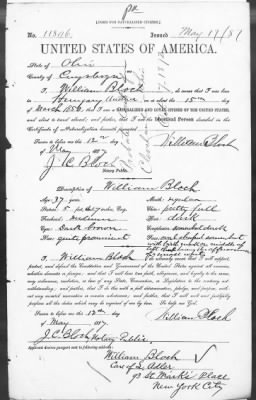 [FORM FOR NATURALIZED CITIZEN.]
No. 11846 Issued May 17/87
UNITED STATES OF AMERICA.
State of Ohio
County of
I William Bloch, do swear that I was born
in on or about the 15th day
of March 1850; that I am a NATURALIZED AND LOYAL CITIZEN OF THE UNITED STATES,
and about to travel abroad; and further, that I am the Identical Person described in the
Certificate of Naturalization herewith presented.
Sworn to before me this 12th
day of May 1887
William Bloch
J. C. Bloch
Notary Public.
Description of William Bloch
Age: 37 years Mouth:
Stature: 5 Chin: full
Forehead: medium Hair: dark
Eyes: Dark brown Complexion:
Nose: quite prominent Face:
I, William Bloch do solemnly swear that I will support,
protect, and defend the Constitution and Government of the United States against all enemies,
whether domestic or foreign; and that I will bear true faith, allegiance, and loyalty to the same,
any ordinance, resolution, or law of any State, Convention, or Legislature to the contrary not-
withstanding; and further, that I do this with a full determination, pledge, and purpose, with-
out any mental reservation or evasion whatsoever; and further, that I will well and faithfully
perform all the duties which may be required of me by law. So help me God.
Sworn to before me this 12th day
of May 1887
William Bloch
J. C. Bloch Notary Public.
Applicant desires passport sent to following address:
William Bloch
Care of Adler
St. Mark's Place
New York City